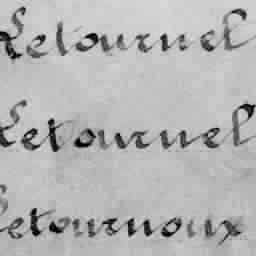 Letournel
Letournel
Letournoux